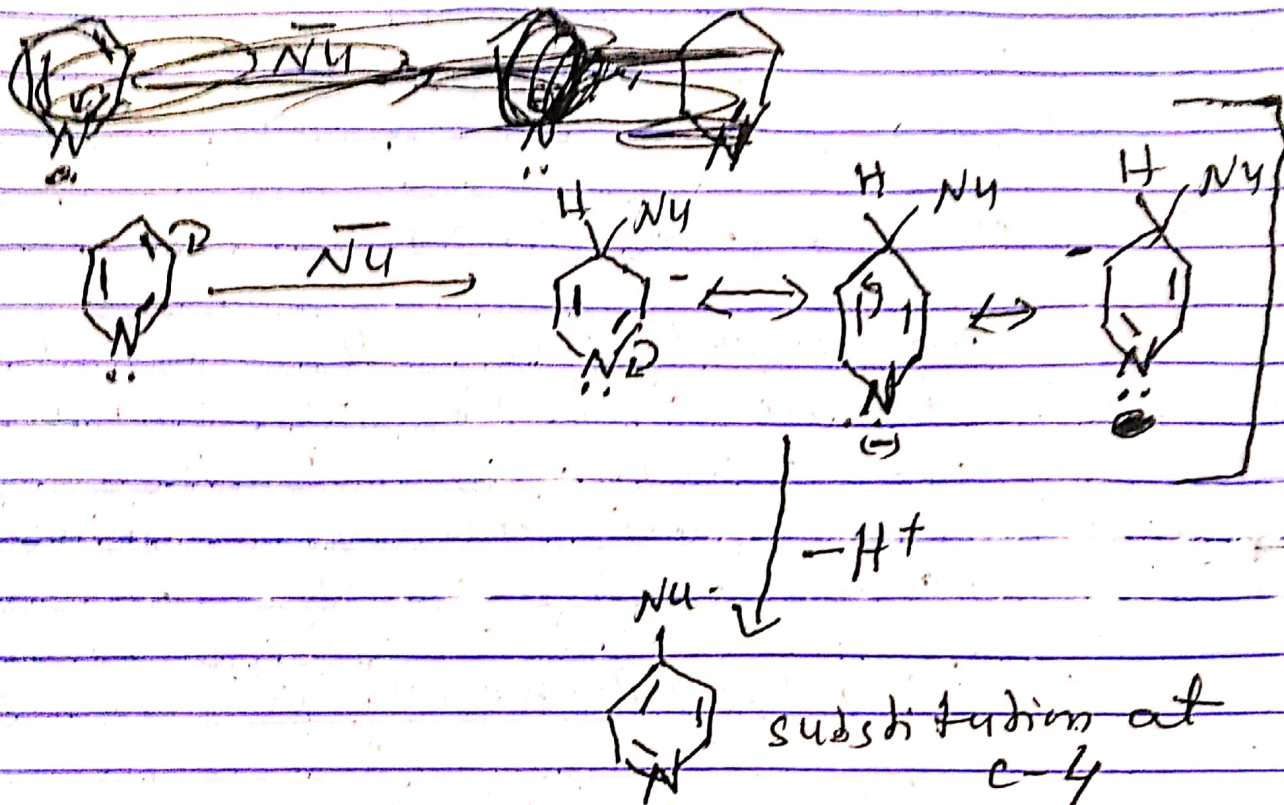 N̄u
N N N
H Nu H Nu H Nu
N̄u
- ⟷ ⟷ -
N N N N
(-)
-H+
Nu
N
substitution at
c-4